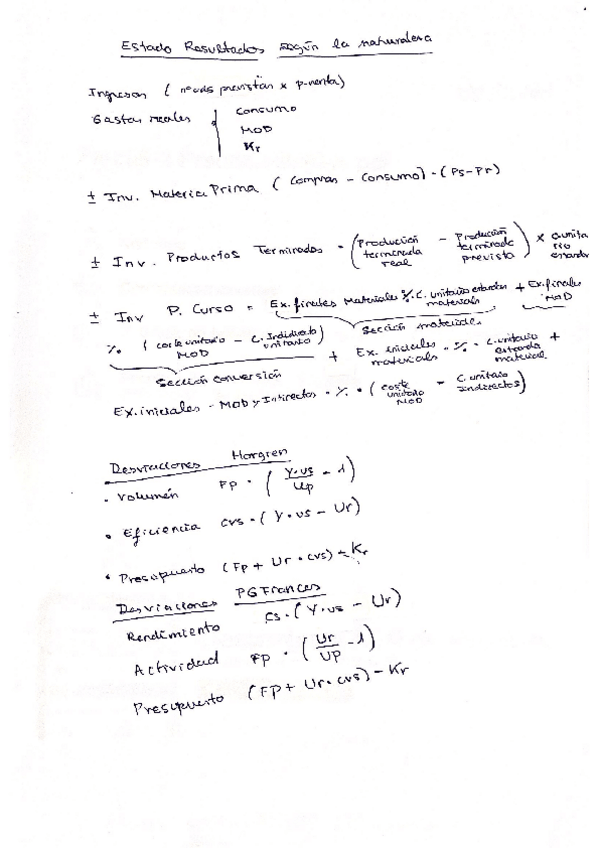 Estado Resultados según la naturaleza
Ingresos ( previstas x p.venta)
Gastos reales { Consumo
MOD
Kr
± Inv. Materia Prima ( Compras - Consumo) · (Ps - Pr)
± Inv. Productos Terminados = (Producción terminada real - Producción terminada prevista) x
± Inv P. Curso = Ex. finales Materiales · % · C. unitario estandar materiales + Ex. finales MOD
Sección materiales
% ( coste unitario MOD - C. Indirecto unitario) + Ex. iniciales materiales · % · C. unitario estandar material +
Sección conversión
Ex. iniciales - MOD y Indirectos · % · ( coste unitario MOD - C. unitario indirectos)
Desviaciones Horgren
· Volumen Fp · ( Y·us / Up - 1)
· Eficiencia cvs · ( Y·us - Ur)
· Presupuesto (Fp + Ur · cvs) - Kr
Desviaciones PGFrances
Rendimiento cs · ( Y·us - Ur)
Actividad Fp · ( Ur / Up - 1)
Presupuesto (FP + Ur · cvs) - Kr